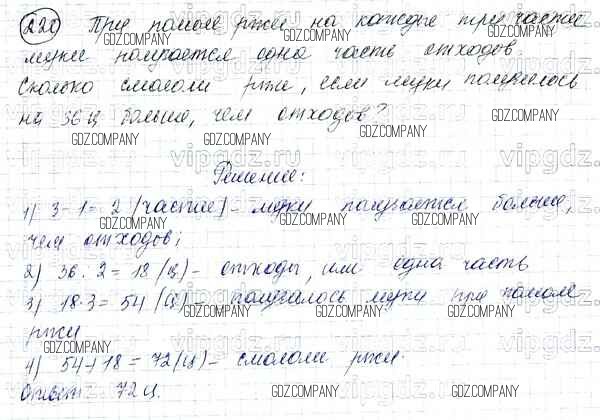 При помоле ржи на каждые три части
муки получается одна часть отходов.
Сколько смололи ржи, если муки получилось
на 36 ц больше, чем отходов?
Решение:
1) 3-1=2 (части) - муки получается больше,
чем отходов;
2) 36:2=18 (ц) - отходы, или одна часть
3) 18·3=54 (ц) - получалось муки при помоле
ржи
4) 54+18=72 (ц) - смололи ржи.
Ответ: 72 ц.
GDZ.COMPANY
vipgdz.ru